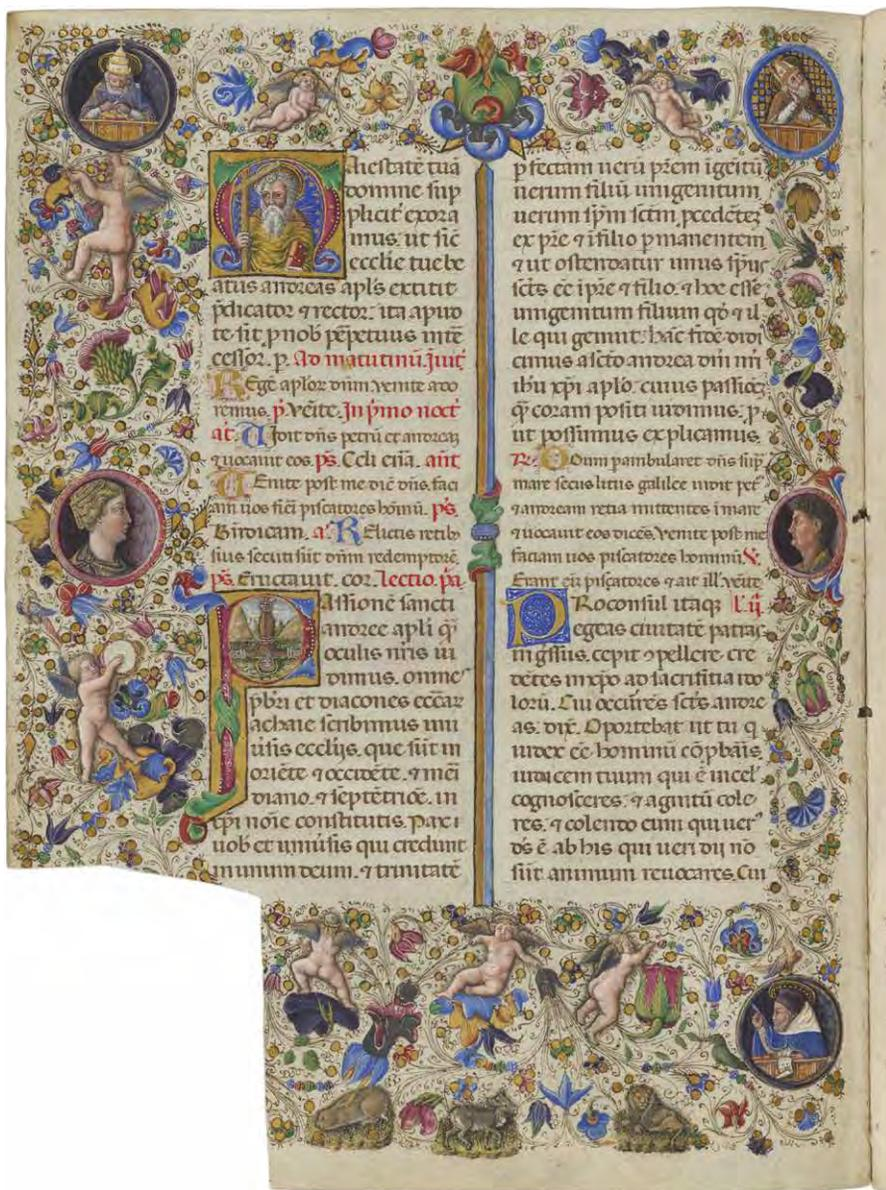 Maiestatē tuā
domine sup
pliciť exora
mus. ut sič
ecclie tue be
atus andreas apl̄s extitit
p̄dicator ⁊ rector. ita apud
te sit p̄ nob p̄petuus inte
cessor. p. Ad matutinū. Inuiť
Regē aplor dn̄m venite ado
remus. p̄. Vēite. In p̄mo noct
at. Uidit dn̄s petrū et andreaȝ
⁊ uocauit eos. p̄s. Celi en̄a. ant
Uenite post me dič dn̄s. faci
am uos fieri piscatores hoīnū. p̄s.
Bn̄dicam. a. Relictis retib
suis secuti sūt dn̄m redemptorē.
p̄s. Eructauit. cor. Lectio. p̄a.
Passionē sancti
andree apli q̄
oculis nr̄is ui
dimus. omne
p̄br̄i et diacones eccār
achaie scribimus uni
ūsis eccl̄ijs. que sūt in
oriēte ⁊ occidēte. ⁊ meri
diano. ⁊ septētriōe. in
xp̄i noīe constitutis. Pax
uob et uniūsis qui credunt
in unum deum. ⁊ trinitatē
p fectam uerū pr̄em īgeitū
uerum filiū unigenitum
uerum sp̄m sc̄tm. p̄cedētez
ex pr̄e ⁊ ī filio pmanentem
⁊ ut ostendatur unus sp̄us
sc̄ts eē ī pr̄e ⁊ filio. ⁊ hoc esse
unigenitum filium qd̄ ⁊ il
le qui genuit. hāc fidē didi
cimus a sc̄to andrea dn̄i nr̄i
ih̄u xp̄i aplo. cuius passioēȝ
q̄ coram positi uidimus. p
ut possumus explicamus.
R. Dum pambularet dn̄s sup
mare secus litus galilee uidit pet
⁊ andream retia mittentes ī mare
⁊ uocauit eos dicēs. Venite post me
faciam uos piscatores hominū. V.
Erant eīı piscatores ⁊ ait ill. vēite
Proconsul itaqȝ l. ij.
egeas ciuitatē patras
ingssus. cepit ꝯpellere cre
dētes in xp̄o ad sacrifitia ido
lorū. Cui occurēs sc̄ts andre
as. dix̄. Oportebat ut tu q
iudex eē hominū cōp̄bāis
iudicem tuum qui ē in cel
cognosceres. ⁊ agnitū cole
res. ⁊ colendo eum qui uer
ds ē ab his qui ueri dij nō
sūt animum reuocares. Cui